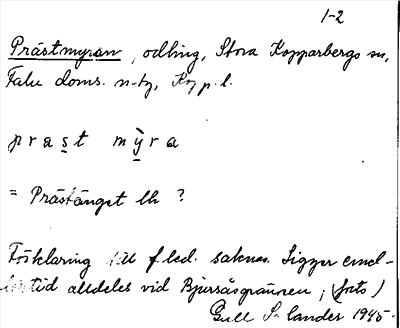 1-2
Prästmyran, odling, Stora Kopparbergs sn,
Falu doms. n-tg, Kopp. l.
prast mỳra
= Prästänget lh ?
Förklaring till f. led. saknas. Ligger emel-
lertid alldeles vid Bjursåsgränsen, (foto)
Gull S lander 1945.